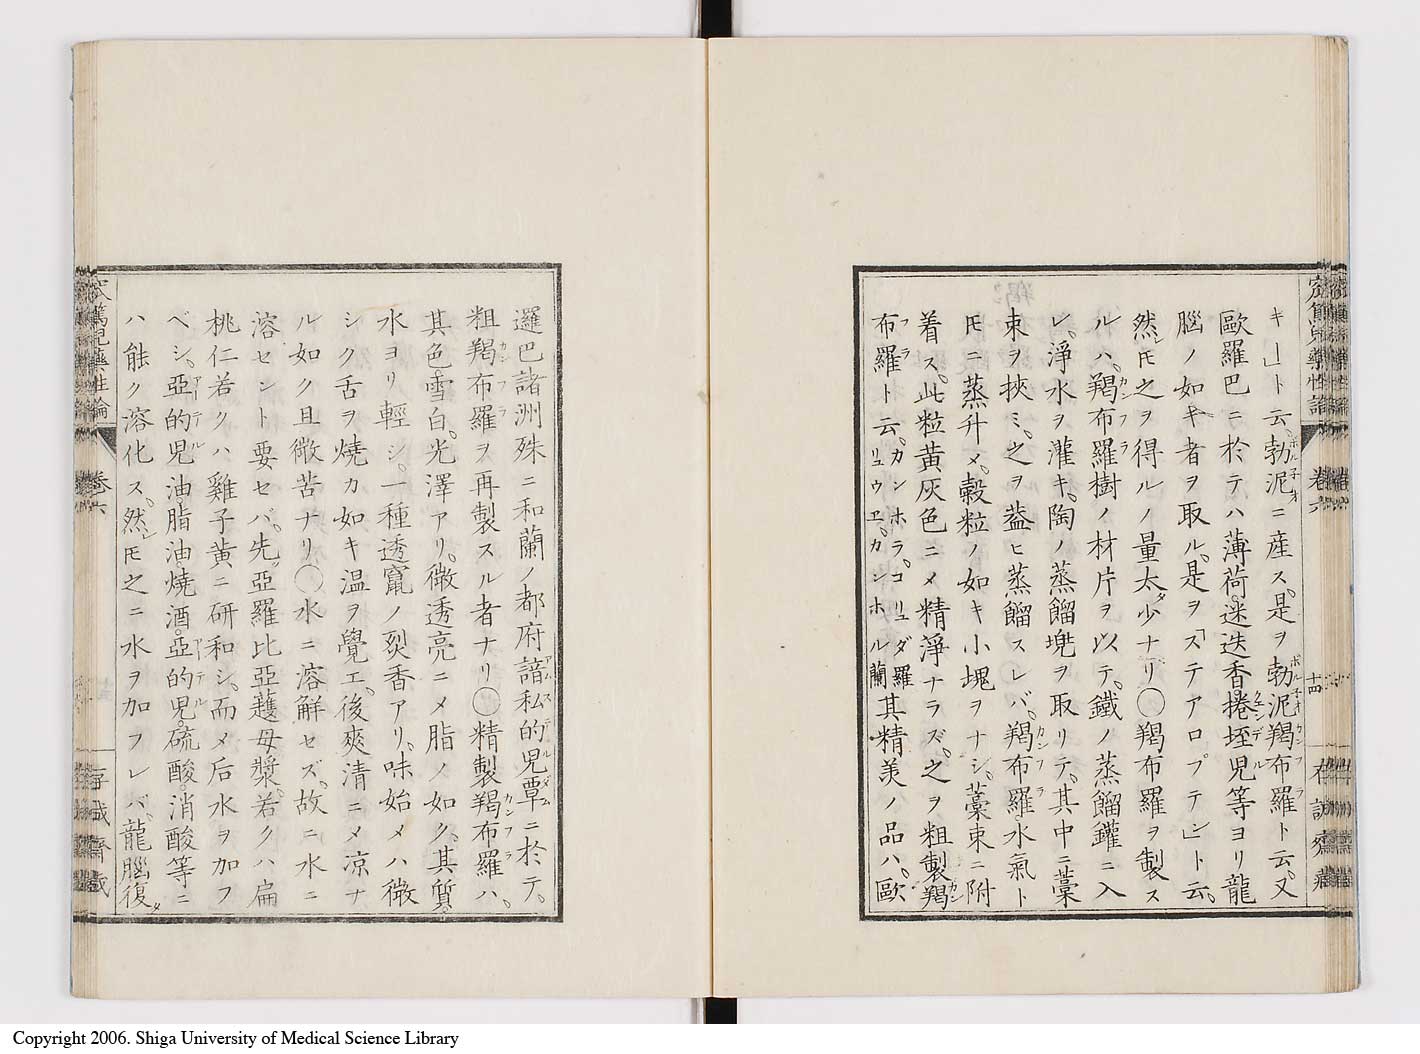 キ」ト云。勃泥ニ産ス。是ヲ勃泥羯布羅ト云。又
歐羅巴ニ於テハ薄荷。迷迭香。捲埀児等ヨリ龍
腦ノ如キ者ヲ取ル。是ヲ「ステアロプテン」ト云。
然𪜈之ヲ得ルノ量太少ナリ〇羯布羅ヲ製ス
ルハ。羯布羅樹ノ材片ヲ以テ。鐵ノ蒸餾鑵ニ入
レ。淨水ヲ灌キ。陶ノ蒸餾兠ヲ取リテ。其中ニ藁
束ヲ挾ミ。之ヲ葢ヒ蒸餾スレバ。羯布羅水氣ト
𪜈ニ蒸升メ。穀粒ノ如キ小塊ヲナシ。藁束ニ附
着ス。此粒黄灰色ニメ精淨ナラズ。之ヲ粗製羯
布羅ト云。カンホラ。コリュダ羅リュウエ。カンホル蘭其精美ノ品ハ。歐
十四
卷六
邏巴諸洲殊ニ和蘭ノ都府諳私的児覃ニ於テ。
粗羯布羅ヲ再製スル者ナリ〇精製羯布羅ハ。
其色雪白。光澤アリ。微透亮ニメ脂ノ如ク。其質。
水ヨリ輕シ。一種透竄ノ烈香アリ。味始メハ微
シク舌ヲ燒カ如キ温ヲ覺エ。後爽清ニメ凉ナ
ル如ク且微苦ナリ〇水ニ溶解セズ。故ニ水ニ
溶セント要セバ。先亞羅比亞護母漿。若クハ扁
桃仁若クハ雞子黄ニ研和シ。而メ后水ヲ加フ
ベシ。亞的児油。脂油。燒酒。亞的児。硫酸。消酸等ニ
ハ能ク溶化ス。然𪜈之ニ水ヲ加フレバ。龍腦復
藥性論
卷六
Copyright 2006. Shiga University of Medical Science Library